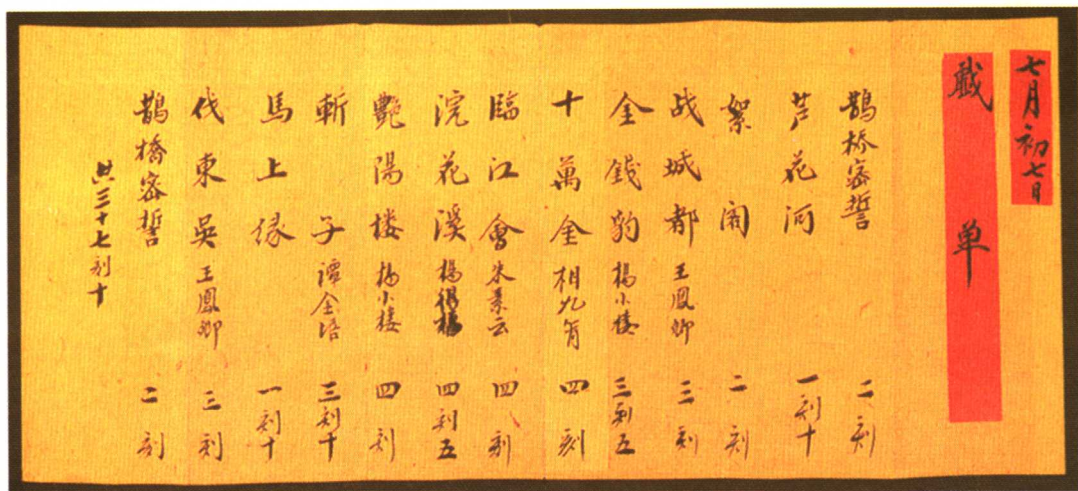 七月初七日
戯单
鵲桥密誓 二刻
芦花河 一刻十
絮阁 二刻
战城都 王鳳卿 三刻
金錢豹 楊小楼 三刻五
十萬金 相九筲 四刻
臨江會 朱素云 四刻
浣花溪 楊 四刻五
艷陽楼 楊小楼 四刻
斬子 譚金培 三刻十
馬上缘 一刻十
伐東吳 王鳳卿 三刻
鵲橋密誓 二刻
共三十七刻十